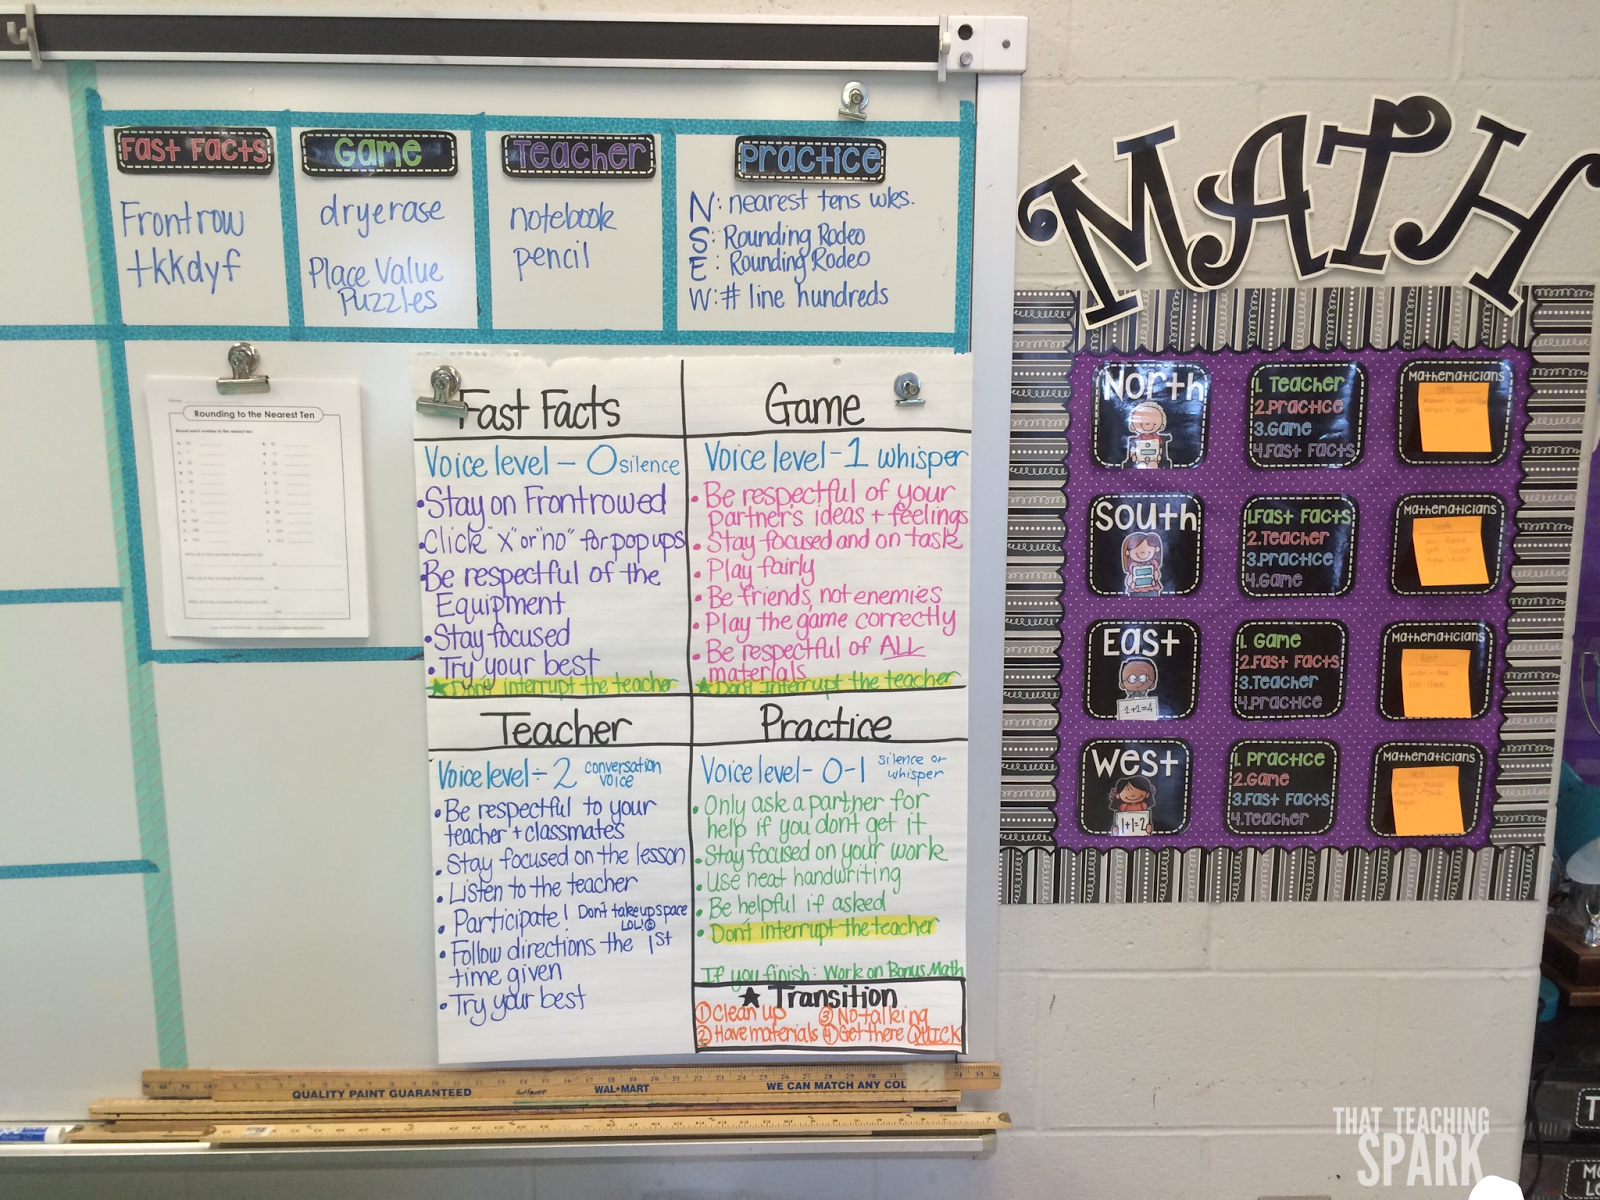 Fast Facts
Frontrow
+kkdyf
Game
dryerase
Place Value
Puzzles
Teacher
notebook
pencil
Practice
N: nearest tens wks.
S: Rounding Rodeo
E: Rounding Rodeo
W: # line hundreds
Rounding to the Nearest Ten
Fast Facts
Voice level - 0 silence
•Stay on Frontrowed
•Click "x" or "no" for pop ups
•Be respectful of the
Equipment
•Stay focused
•Try your best
★Don't interrupt the teacher
Game
Voice level - 1 whisper
•Be respectful of your
partner's ideas + feelings
•Stay focused and on task
•Play fairly
•Be friends, not enemies
•Play the game correctly
•Be respectful of ALL
materials
★Don't interrupt the teacher
Teacher
Voice level - 2 conversation
voice
•Be respectful to your
teacher + classmates
•Stay focused on the lesson
•Listen to the teacher
•Participate! Don't take up space
LOL!
•Follow directions the 1st
time given
•Try your best
Practice
Voice level - 0-1 silence or
whisper
•Only ask a partner for
help if you don't get it
•Stay focused on your work
•Use neat handwriting
•Be helpful if asked
•Don't interrupt the teacher
If you finish: Work on Bonus Math
★ Transition
① Clean up ③ No talking
② Have materials ④ Get there QUICK
QUALITY PAINT GUARANTEED WAL★MART WE CAN MATCH ANY COL
MATH
North
1. Teacher
2.Practice
3.Game
4.Fast Facts
Mathematicians
South
1.Fast Facts
2.Teacher
3.Practice
4.Game
Mathematicians
East
2+2=4
1. Game
2.Fast Facts
3.Teacher
4.Practice
Mathematicians
West
1+1=2
1. Practice
2.Game
3.Fast Facts
4.Teacher
Mathematicians
THAT TEACHING
SPARK